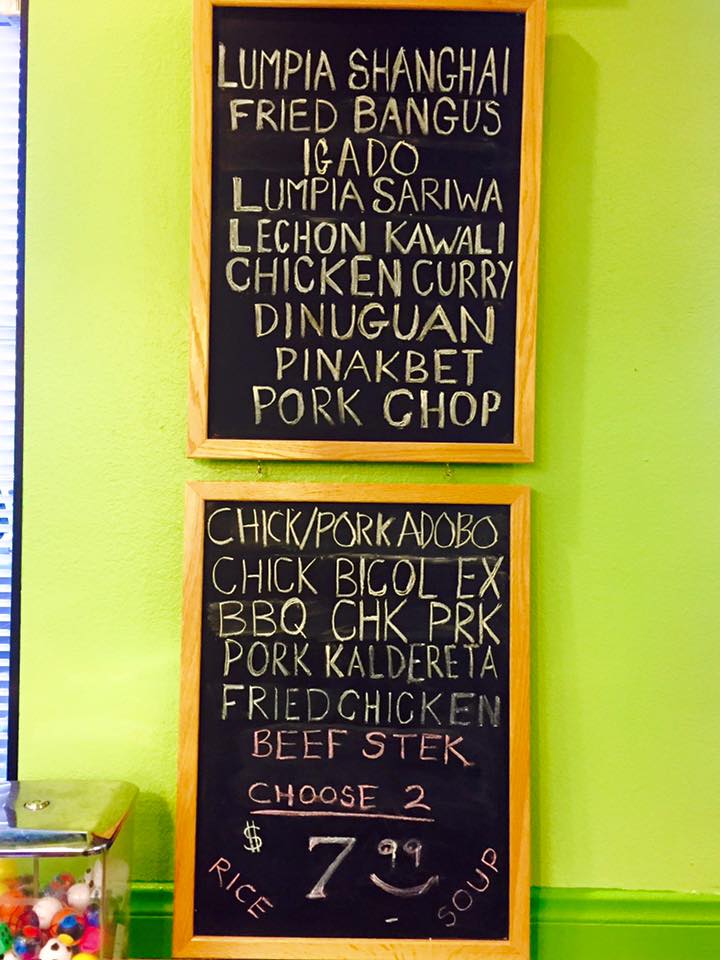 LUMPIA SHANGHAI
FRIED BANGUS
IGADO
LUMPIA SARIWA
LECHON KAWALI
CHICKEN CURRY
DINUGUAN
PINAKBET
PORK CHOP
CHICK/PORK ADOBO
CHICK BICOL EX
BBQ CHK PRK
PORK KALDERETA
FRIED CHICKEN
BEEF STEK
CHOOSE 2
$ 7 99
RICE
SOUP